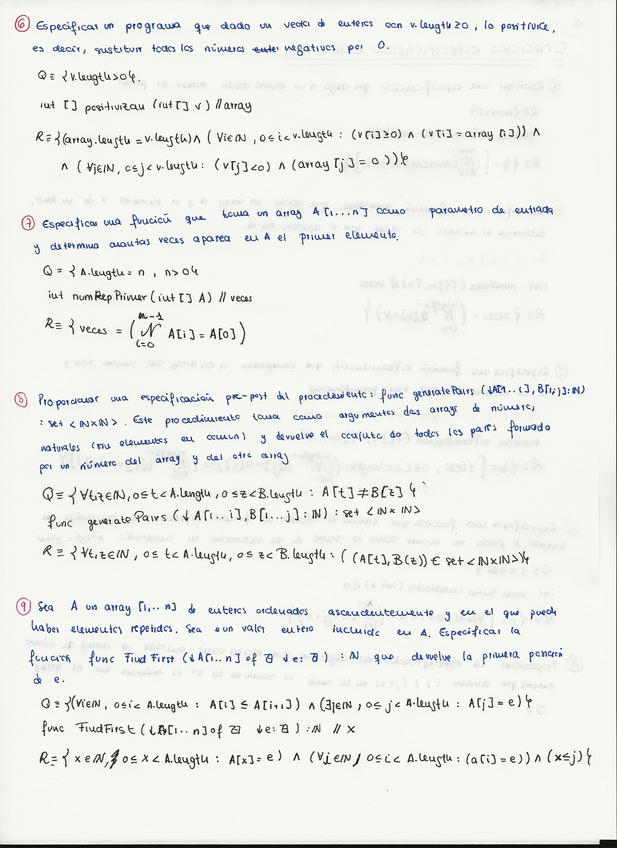 ⑥ Especificar un programa que dado un vector de enteros con v.length ≥ 0, lo positivice,
es decir, sustituir todos los números negativos por 0.
Q ≡ {v.length > 0}.
int [] positivizar (int [] v) // array
R ≡ {(array.length = v.length) ∧ (∀i∈ℕ, 0≤i<v.length : (v[i]≥0) ∧ (v[i] = array[i])) ∧
∧ (∀j∈ℕ, 0≤j<v.length : (v[j]<0) ∧ (array[j] = 0))}
⑦ Especificar una función que toma un array A[1...n] como parametro de entrada
y determina cuantas veces aparece en A el primer elemento.
Q = {A.length = n, n>0}
int numRepPrimer (int [] A) // veces
R ≡ {veces = (
n-1
N
i=0
A[i] = A[0])
⑧ Proporcionar una especificación pre-post del procedimiento: func generatePairs (↓A[1...i], B[1..j]:ℕ)
: set <ℕ×ℕ>. Este procedimiento toma como argumentos dos arrays de número,
naturales (sin elementos en común) y devuelve el conjunto de todos los pares formado
por un número del array y del otro array
Q ≡ {∀t,z∈ℕ, 0≤t<A.length, 0≤z<B.length : A[t] ≠ B[z]}
func generatePairs (↓A[1...i], B[1...j] : ℕ) : set <ℕ×ℕ>
R ≡ {∀t,z∈ℕ, 0≤t<A.length, 0≤z<B.length : ((A[t], B(z)) ∈ set <ℕ×ℕ>)}
⑨ Sea A un array [1,..n] de enteros ordenados ascendentemente y en el que puede
haber elementos repetidos. Sea e un valor entero incluido en A. Especificar la
función func FindFirst (↓A[1...n] of ℤ ↓e:ℤ) : ℕ que devuelve la primera
de e.
Q ≡ {(∀i∈ℕ, 0≤i<A.length : A[i] ≤ A[i+1]) ∧ (∃j∈ℕ, 0≤j<A.length : A[j] = e)}
func FindFirst (↓A[1...n] of ℤ ↓e:ℤ) : ℕ // x
R ≡ {x∈ℕ, 0≤x<A.length : A[x] = e) ∧ (∀j∈ℕ, 0≤i<A.length : (a[i] = e)) ∧ (x≤j)}